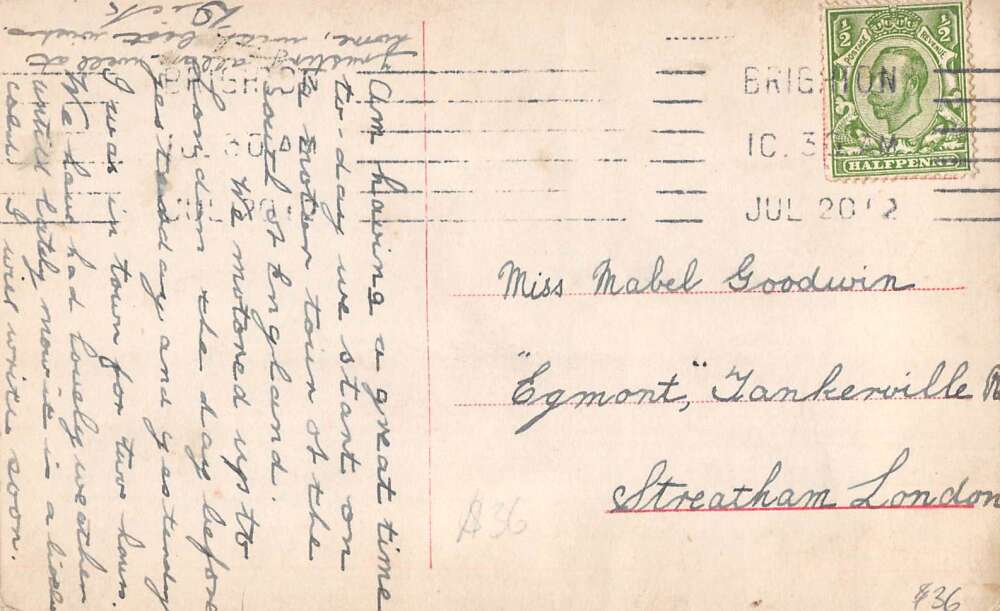 Am having a great time
to-day we start on
a motor tour of the
South of England.
We motored up to
London the day before
yesterday and yesterday
I was in town for two hours.
We have had lovely weather
until lately now it is a little
cold. I will write soon.
Trusting all are well at
home, with best wishes
Dick
BRIGHTON
10.3 AM
JUL 20 12
BRIGHTON
10.30 AM
JUL 20 12
½ ½
POSTAGE REVENUE
HALFPENNY
Miss Mabel Goodwin
"Egmont," Tankerville R
Streatham London
$36
$36